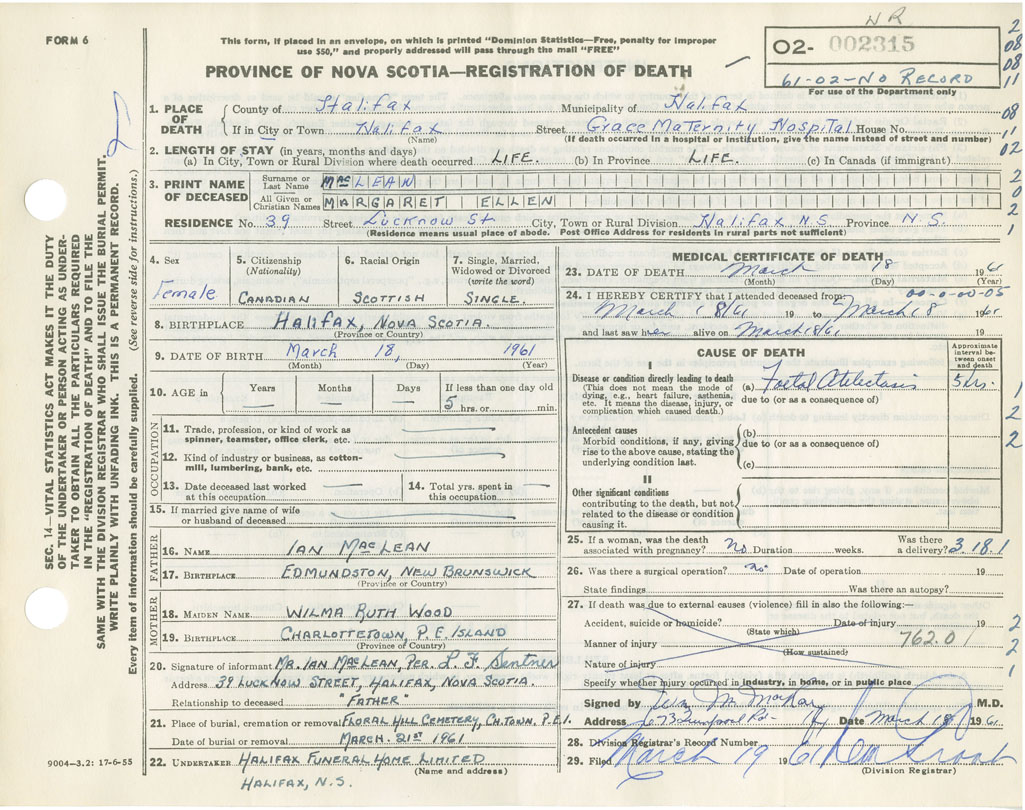 NR
FORM 6
This form, if placed in an envelope, on which is printed "Dominion Statistics—Free, penalty for improper
use $50," and properly addressed will pass through the mail "FREE"
02- 002315
61-02-NO RECORD
For use of the Department only
PROVINCE OF NOVA SCOTIA—REGISTRATION OF DEATH
1. PLACE OF DEATH
County of Halifax Municipality of Halifax
If in City or Town Halifax Street Grace Maternity Hospital House No.
(Name) (If death occurred in a hospital or institution, give the name instead of street and number)
2. LENGTH OF STAY (in years, months and days)
(a) In City, Town or Rural Division where death occurred LIFE. (b) In Province LIFE. (c) In Canada (if immigrant)
3. PRINT NAME OF DECEASED
Surname or Last Name MacLEAN
All Given or Christian Names MARGARET ELLEN
RESIDENCE No. 39 Street Lucknow St City, Town or Rural Division Halifax N.S. Province N.S.
(Residence means usual place of abode. Post Office Address for residents in rural parts not sufficient)
4. Sex Female
5. Citizenship (Nationality) CANADIAN
6. Racial Origin SCOTTISH
7. Single, Married, Widowed or Divorced (write the word) SINGLE.
8. BIRTHPLACE HALIFAX, NOVA SCOTIA.
(Province or Country)
9. DATE OF BIRTH March 18, 1961
(Month) (Day) (Year)
10. AGE in Years Months Days If less than one day old
5 hrs. or min.
OCCUPATION
11. Trade, profession, or kind of work as
spinner, teamster, office clerk, etc.
12. Kind of industry or business, as cotton-
mill, lumbering, bank, etc.
13. Date deceased last worked
at this occupation
14. Total yrs. spent in
this occupation
15. If married give name of wife
or husband of deceased
FATHER
16. NAME IAN MacLEAN
17. BIRTHPLACE EDMUNDSTON, NEW BRUNSWICK
(Province or Country)
MOTHER
18. MAIDEN NAME WILMA RUTH WOOD
19. BIRTHPLACE CHARLOTTETOWN, P.E. ISLAND
(Province of Country)
20. Signature of informant MR. IAN MacLEAN, PER. L. F. Sentner
Address 39 LUCKNOW STREET, HALIFAX, NOVA SCOTIA.
Relationship to deceased "FATHER"
21. Place of burial, cremation or removal FLORAL HILL CEMETERY, CH.TOWN, P.E.I.
Date of burial or removal MARCH. 21st 1961
22. UNDERTAKER HALIFAX FUNERAL HOME LIMITED
(Name and address)
HALIFAX, N.S.
MEDICAL CERTIFICATE OF DEATH
23. DATE OF DEATH March 18 1961
(Month) (Day) (Year)
00-0-00-05
24. I HEREBY CERTIFY that I attended deceased from
March 18/61 19 to March 18 1961
and last saw her alive on March 18/61 19
CAUSE OF DEATH
Approximate interval between onset and death
I
Disease or condition directly leading to death
(This does not mean the mode of dying, e.g., heart failure, asthenia, etc. It means the disease, injury, or complication which caused death.)
(a) Foetal Atelectasis 5 hrs.
due to (or as a consequence of)
Antecedent causes
Morbid conditions, if any, giving rise to the above cause, stating the underlying condition last.
(b)
due to (or as a consequence of)
(c)
II
Other significant conditions
contributing to the death, but not related to the disease or condition causing it.
25. If a woman, was the death
associated with pregnancy? No Duration weeks. Was there
a delivery? 3.18.1
26. Was there a surgical operation? No Date of operation 19
State findings Was there an autopsy?
27. If death was due to external causes (violence) fill in also the following:—
Accident, suicide or homicide? Date of injury 19
(State which)
Manner of injury 762.0
(How sustained)
Nature of injury
Specify whether injury occurred in industry, in home, or in public place
Signed by M.D.
Address Date March 18 1961
28. Division Registrar's Record Number
29. Filed March 19 1961
(Division Registrar)
SEC. 14—VITAL STATISTICS ACT MAKES IT THE DUTY
OF THE UNDERTAKER OR PERSON ACTING AS UNDER-
TAKER TO OBTAIN ALL THE PARTICULARS REQUIRED
IN THE "REGISTRATION OF DEATH" AND TO FILE THE
SAME WITH THE DIVISION REGISTRAR WHO SHALL ISSUE THE BURIAL PERMIT.
WRITE PLAINLY WITH UNFADING INK. THIS IS A PERMANENT RECORD.
Every item of information should be carefully supplied. (See reverse side for instructions.)
9004-3.2: 17-6-55
2
08
08
11
08
11
02
2
0
2
1
1
2
2
2
2
1